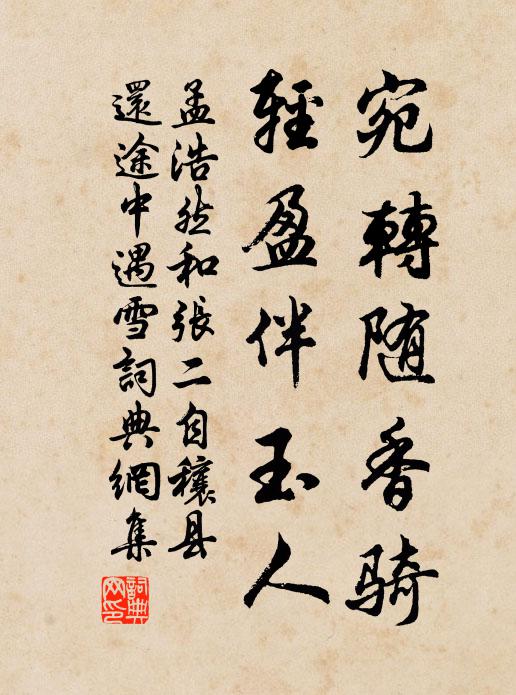 宛轉随香骑
輕盈伴玉人
孟浩然和張二自穰县
還途中遇雪詞典網集
詞典網印